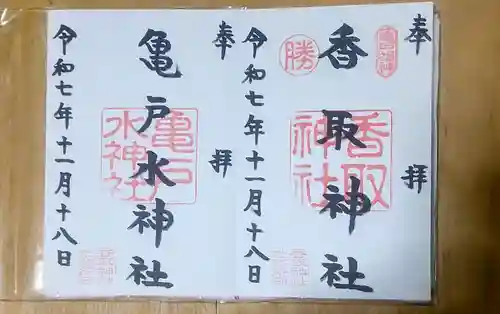 奉拝
香取神社
勝
香取神社
令和七年十一月十八日
奉拝
亀戸水神社
亀戸水神社
令和七年十一月十八日